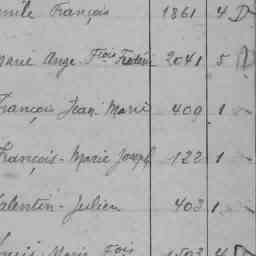 François 1861 4 D
Marie Ange Fçois Frédéric 2041 5 D
François Jean Marie 409 1
François-Marie Joseph 122 1
Valentin-Julien 403 1
Marie Fois